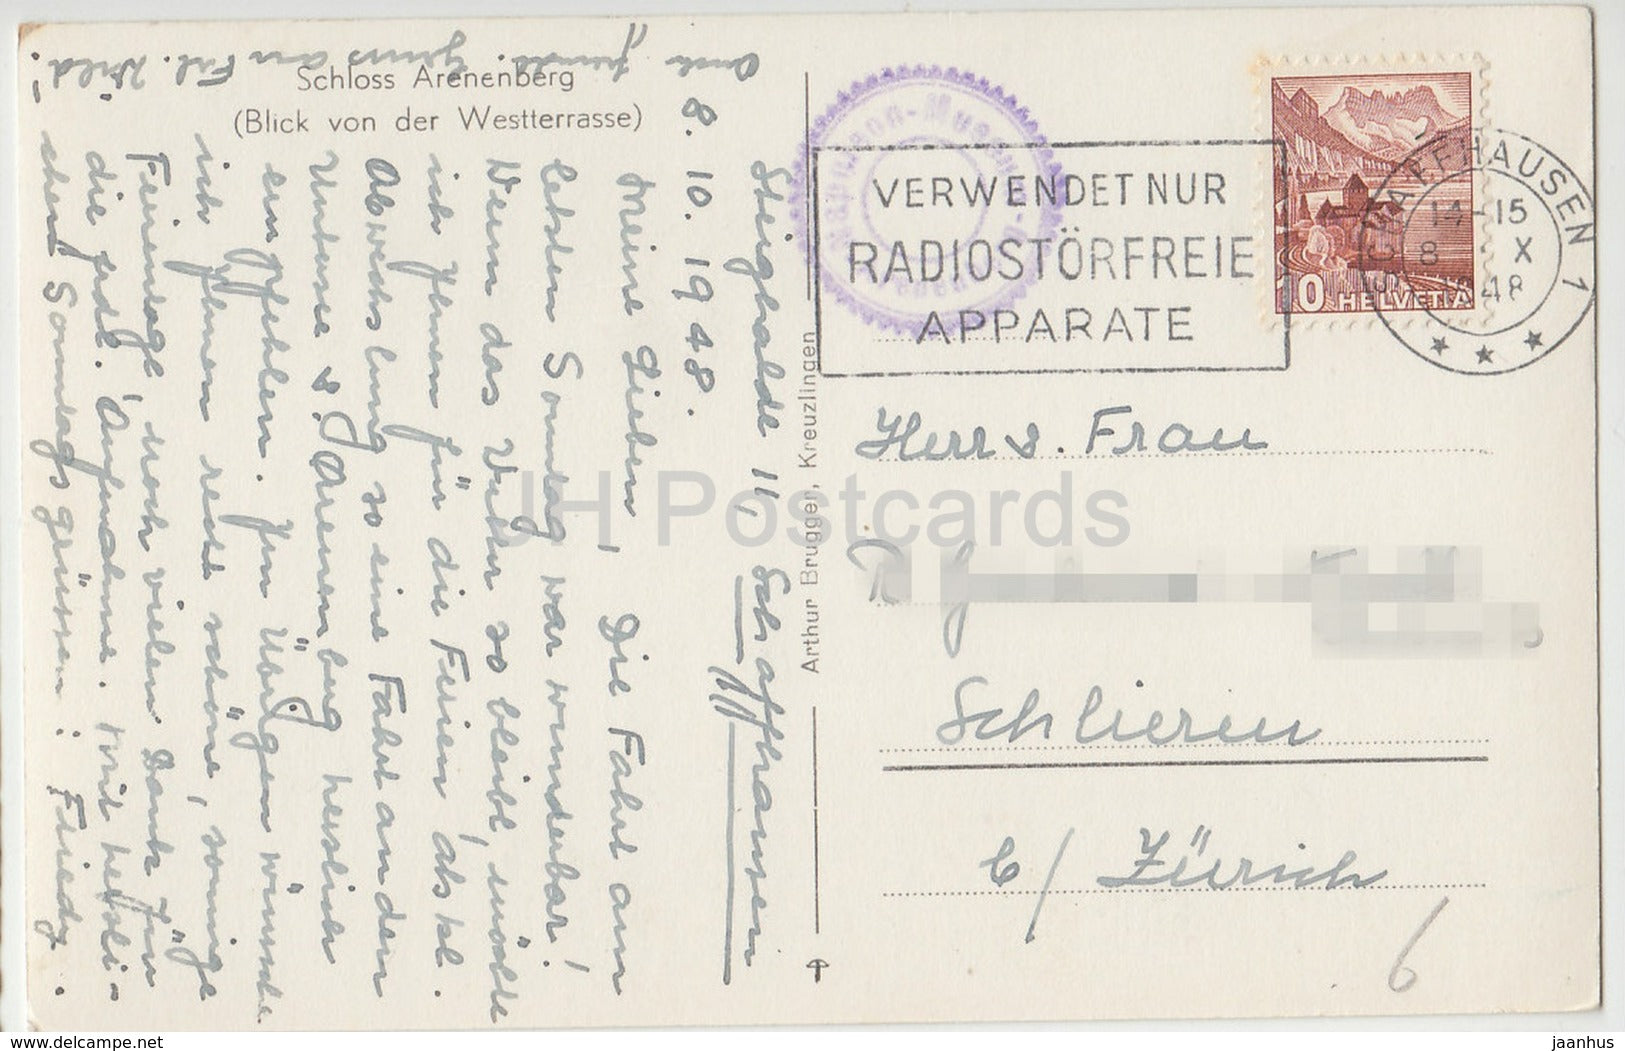 Schloss Arenenberg
(Blick von der Westterrasse)
Steighalde 11, Schaffhausen
8.10.1948.
Meine Lieben! Die Fahrt am
letzten Sonntag war wunderbar!
Wenn das Wetter so bleibt, möchte
ich Ihnen für die Ferien als kl.
Abwechslung so eine Fahrt an den
Untersee & Arenenberg herzlich
empfehlen. Im Übrigen wünsche
ich Ihnen recht schöne, sonnige
Ferientage, noch vielen Dank für
die Aufnahme. Mit herzli-
chen Sonntagsgrüssen: Friedy.
Gruss an Frl. Wild!
Arthur Brugger, Kreuzlingen
Napoleon-Museum
VERWENDET NUR
RADIOSTÖRFREIE
APPARATE
10 HELVETIA
SCHAFFHAUSEN 1
14-15
8 X
48
Herr & Frau
Schlieren
b/ Zürich
6
JH Postcards
www.delcampe.net
jaanhus